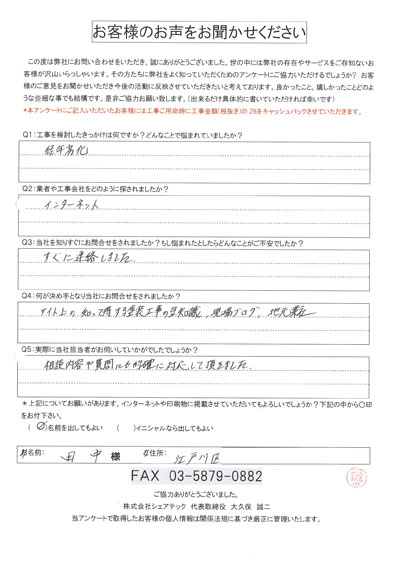 お客様のお声をお聞かせください
この度は弊社にお問い合わせをいただき、誠にありがとうございました。世の中には弊社の存在やサービスをご存知ないお
客様が沢山いらっしゃいます。その方たちに弊社をよく知っていただくためのアンケートにご協力いただけるでしょうか？ お客
様のご意見をお聞かせいただき今後の活動に反映させていただきたいと考えております。良かったこと、嬉しかったことどの
ような些細な事でも結構です。是非ご協力お願い致します。（出来るだけ具体的に書いていただければ幸いです）
*本アンケートにご記入いただいたお客様には工事ご用命時に工事金額(税抜き)の 2%をキャッシュバックさせていただきます。
Q1：工事を検討したきっかけは何ですか？どんなことで悩まれていましたか？
経年劣化
Q2：業者や工事会社をどのように探されましたか？
インターネット
Q3：当社を知りすぐにお問合せをされましたか？もし悩まれたとしたらどんなことがご不安でしたか？
すぐに連絡しました
Q4：何が決め手となり当社にお問合せをされましたか？
サイト上の 知って得する塗装工事の豆知識、現場ブログ、地元業社
Q5：実際に当社担当者がお伺いしていかがでしたでしょうか？
相談内容や質問にも的確に対応して頂きました.
＊上記についてお願いがあります。インターネットや印刷物に掲載させていただいてもよろしいでしょうか？下記の中から〇印
をお付下さい。
（〇）名前を出してもよい　（　）イニシャルなら出してもよい
お名前： 田中 様　ご住所： 江戸川区
FAX 03-5879-0882
ご協力ありがとうございました。
株式会社シェアテック 代表取締役 大久保 誠二
当アンケートで取得したお客様の個人情報は関係法規に基づき厳正に管理いたします。